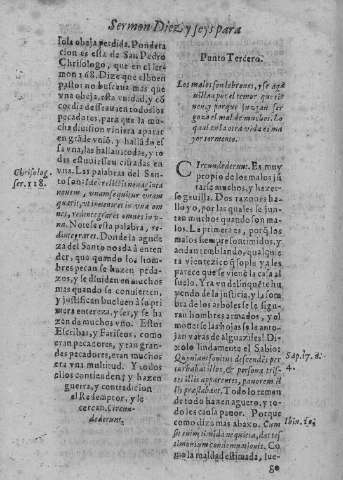 Sermon Diez, y seys para
sola obeja perdida. Pondera
cion es esta de San Pedro
Chrisologo, que en el ser
mon 168. Dize que el buen
pastor no buscaua mas que
vna obeja, esta vnidad, y cõ
cordia desseaua en todos los
pecadores, para que la mu-
cha diuission viniera a parar
en grã de vniõ, y hallãdo es
sa vna, las hallara todas, y to
das estuuiessen cifradas en
vna. Las palabras del San-
to son:
quærit, vt inuenires in vna om
nes,
na. Notese esta palabra, redin-
tegraret. Donde la agude
za del Santo nos dà à enten
der, que quando los hom-
bres pecan se hazen peda-
zos, y se diuiden en muchos
mas quando se conuierten,
y justifican buelven à su pri
mera entereza, y ser, y se ha
zen de muchos vno. Estos
Escribas, y Fariseos, como
eran pecadores, y tan gran-
des pecadores, eran muchos
era vna multitud. Y todos
pilos contienden, y hazen
guerra, y contradicion
al Redemptor, y le
cercan. Circun-
dederunt.
Chrisolog.
ser. 128.
Punto Tercero.
Los malos son lebrones, y se aga
villan por el temor que tie-
nen, y porque
goza el mal de muchos. Lo
qual en la otra vida es ma
yor tormento.
Circundederunt. Es muy
propio de los malos jũ
tarse muchos, y hazer-
se gauilla. Dos razones ha-
llo yo, por las quales se jun-
tan muchos quando son ma
los. La primera es, porq̃ los
malos siempre son timidos, y
andan temblando, qualquie
ra vientezico q̃ sople ya les
parece que se viene la casa al
suelo. Yrà vn delinquẽte hu
yendo de la justicia, y la som
bra de los arboles se le figu-
ran hombres armados, y ol
mones se las hojas se le anto-
jan varas de alguaziles! Di-
xolo lindamente el Sabio:
descendẽs per
turbabat illos, & personæ tris-
tes illis apparentes, pauorem il
lis præstabant. Todo lo temen
de todo hazen aguero, y to-
do les causa pauor. Porque
como dize mas abaxo. Cum
sit enim timida nequitia, dat tes
timonium condemnationis. Co
mo la maldad es timida, lue-
Sap. 17. à.
4.
Ibin. 10.
go